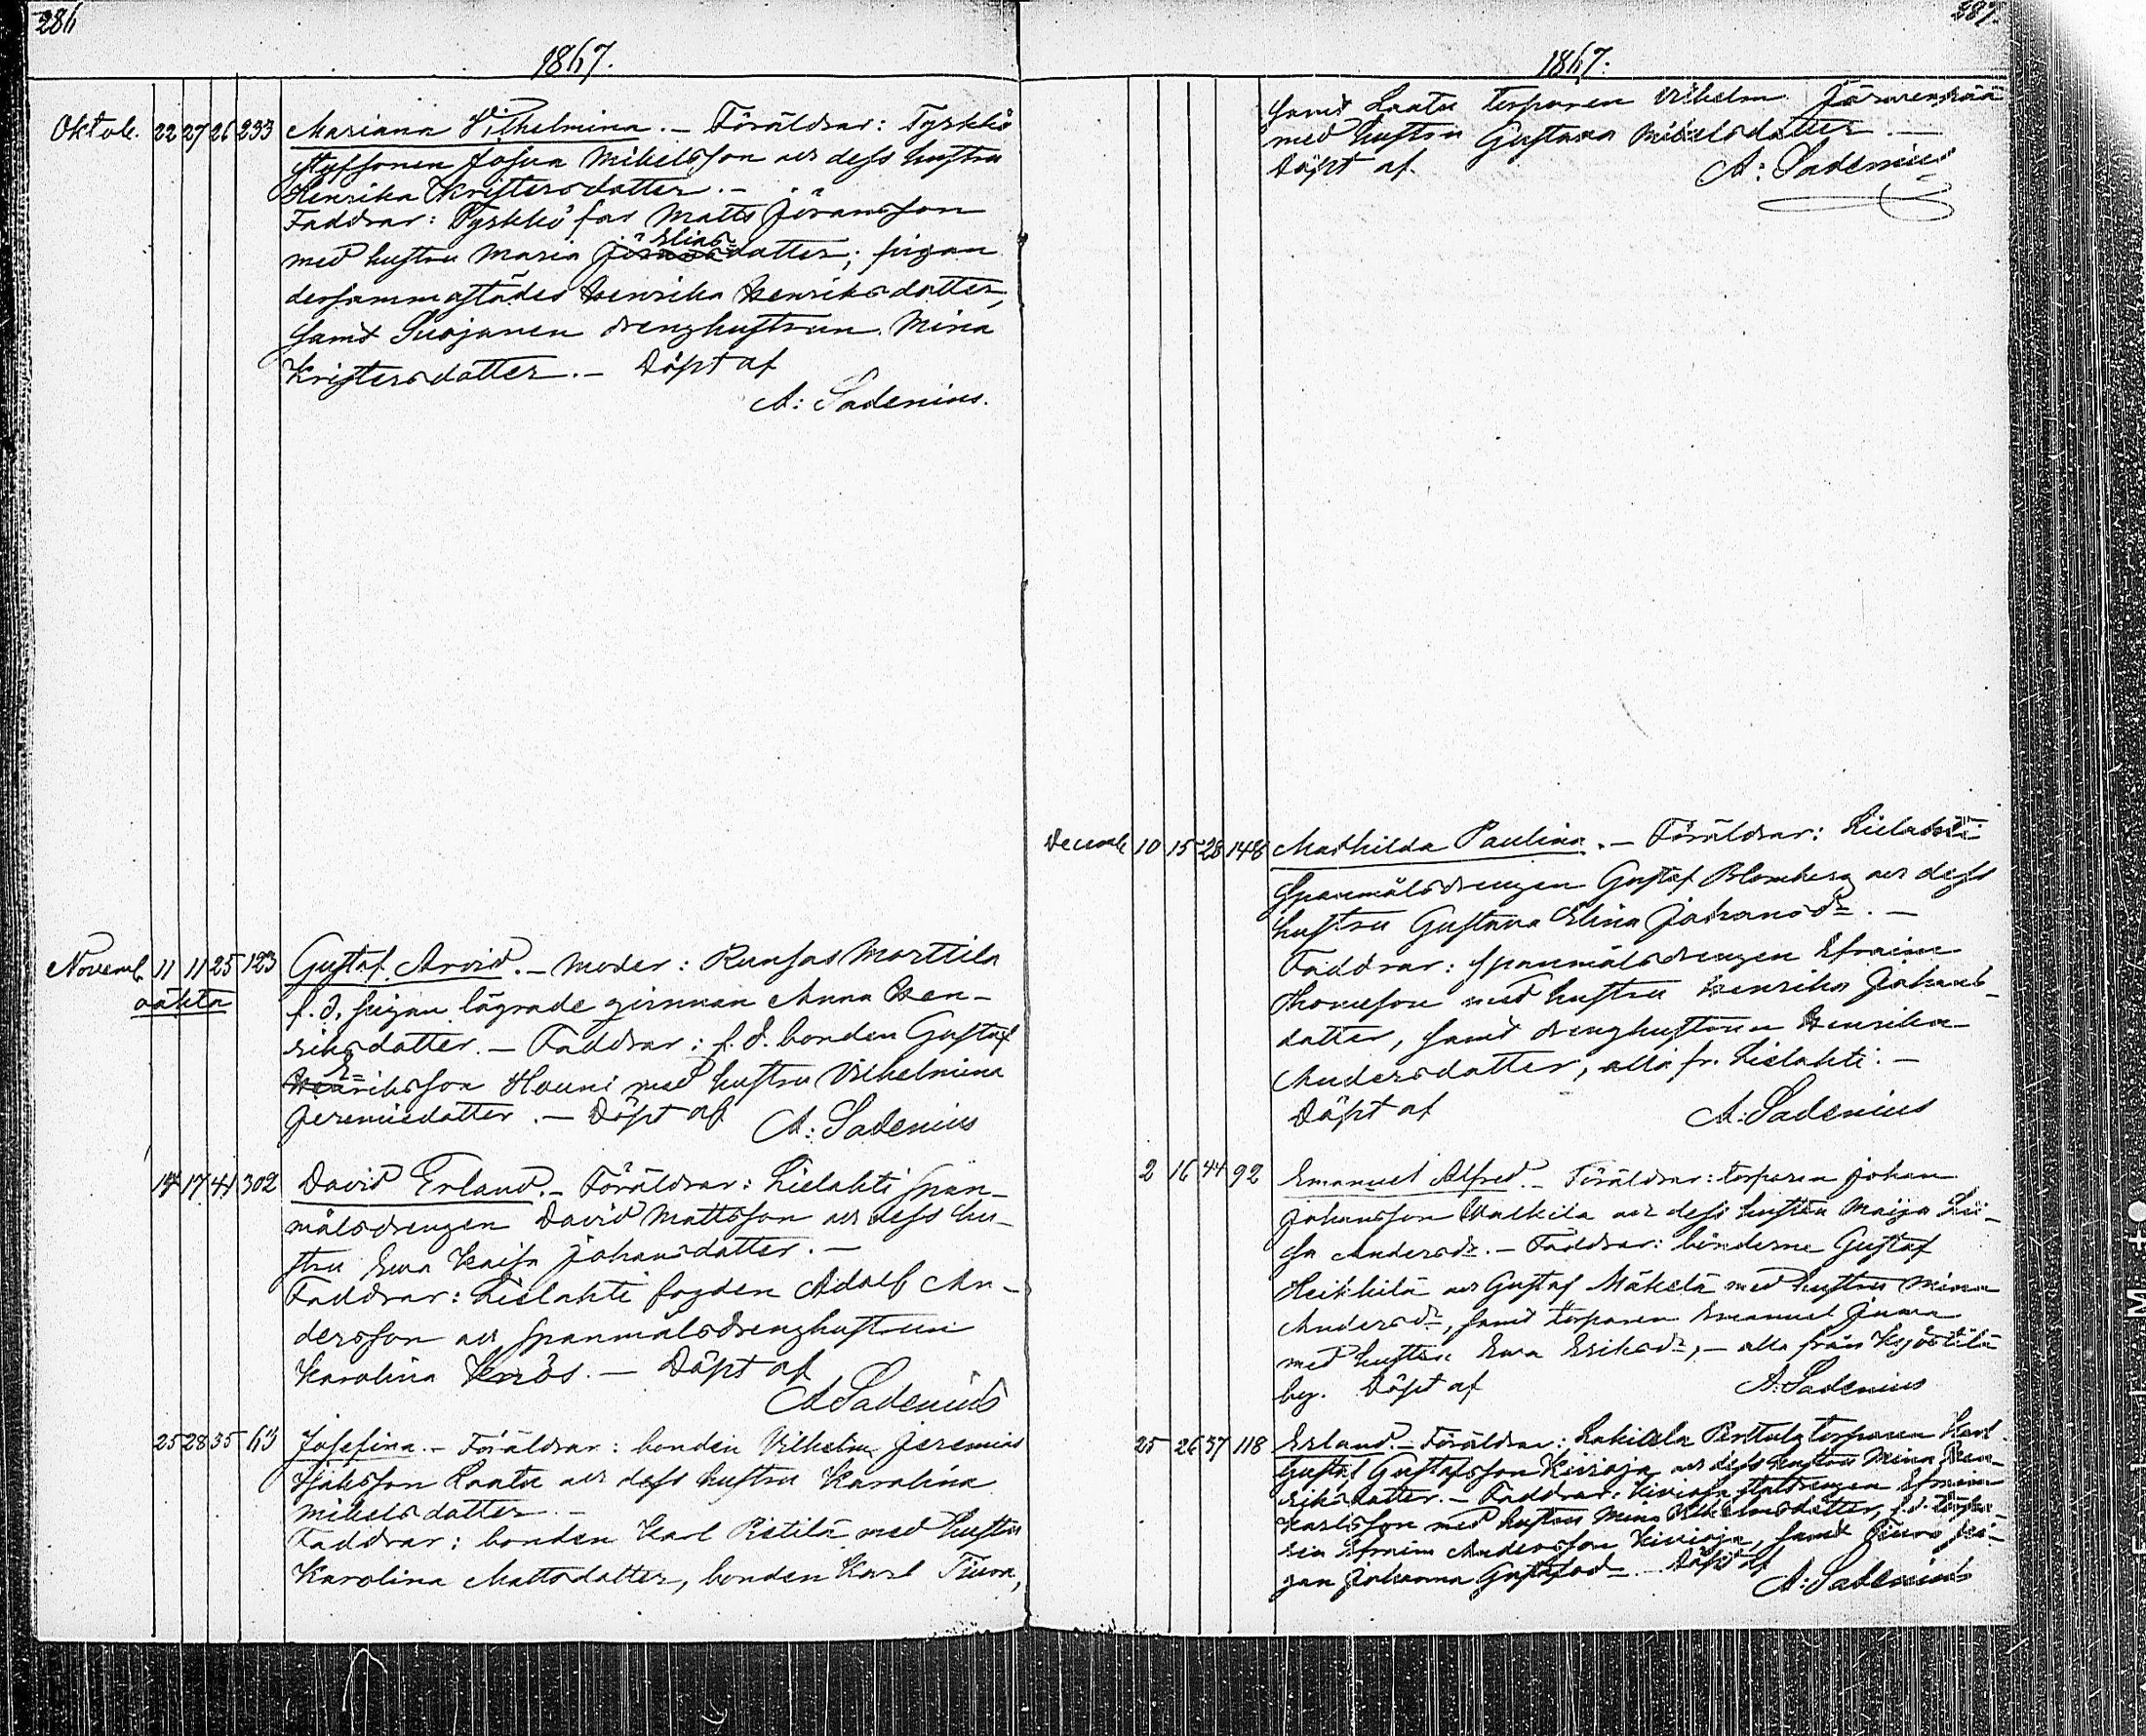 286
1867.
Oktob. 22 27 26 233 Mariana Vilhelmina. – Föräldrar: Tyrkkö
styfsonen Josua Mikelsson och dess hustru
Henrika Kristersdotter. –
Faddrar: Tyrkkö far Matts Jöransson
med hustru Maria Eliasdotter; pigan
dersammastädes Henrika Henriksdotter,
samt Suojanen drenghustrun Mina
Kristersdotter. – Döpt af
A: Sadenius.
Novemb. 11 11 25 123 Gustaf Arvid. – Moder: Runsas Morttila
oäkta f. d. pigan lägrade qvinnan Anna Hen-
riksdotter. – Faddrar: f. d. bonden Gustaf
Eriksson Houni med hustru Vilhelmina
Jeremiedotter. – Döpt af A: Sadenius
14 17 41 302 David Erland. – Föräldrar: Lielahti span-
målsdrengen David Mattsson och dess hu-
stru Ewa Kaisa Johansdotter. –
Faddrar: Lielahti fogden Adolf An-
dersson och spanmålsdrenghustrun
Karolina Harös. – Döpt af
A Sadenius
25 28 35 63 Josefina. – Föräldrar: bonden Vilhelm Jeremias
Isaksson Laatu och dess hustru Karolina
Mikelsdotter. –
Faddrar: bonden Karl Ristilä med hustru
Karolina Mattsdotter, bonden Karl Tiura,
287.
1867.
samt Laatu torparen Vilhelm Järvenpää
med hustru Gustava Mikelsdotter. –
Döpt af A: Sadenius
Decemb. 10 15 28 148 Mathilda Paulina. – Föräldrar: Lielahti
spanmålsdrengen Gustaf Blomberg och dess
hustru Gustava Elina Johansd:r. –
Faddrar: spanmålsdrengen Efraim
Thomeson med hustru Henrika Johans-
dotter, samt drenghustrun Henrika
Andersdotter, alla fr. Lielahti. –
Döpt af A: Sadenius
2 16 44 92 Emanuel Alfred. – Föräldrar: torparen Johan
Johansson Walkila och dess hustru Maija Lii-
sa Andersd:r. – Faddrar: bönderne Gustaf
Heikkilä och Gustaf Mäkelä med hustru Mina
Andersd:r, samt torparen Emanuel Juma
med hustru Ewa Eriksd:r, – alla från
by. Döpt af A: Sadenius
25 26 37 118 Erland. – Föräldrar: Perttula torparen Karl
Gustaf Gustafsson Kivioja och dess hustru Mina Hen-
riksdotter. – Faddrar: Kivioja statdrengen Efraim
Karlsson med hustru Mina Vilhelmsdotter, f. d.
Efraim Andersson Kivioja, samt pi-
gan Johanna Gustafsd:r – Döpt af
A: Sadenius